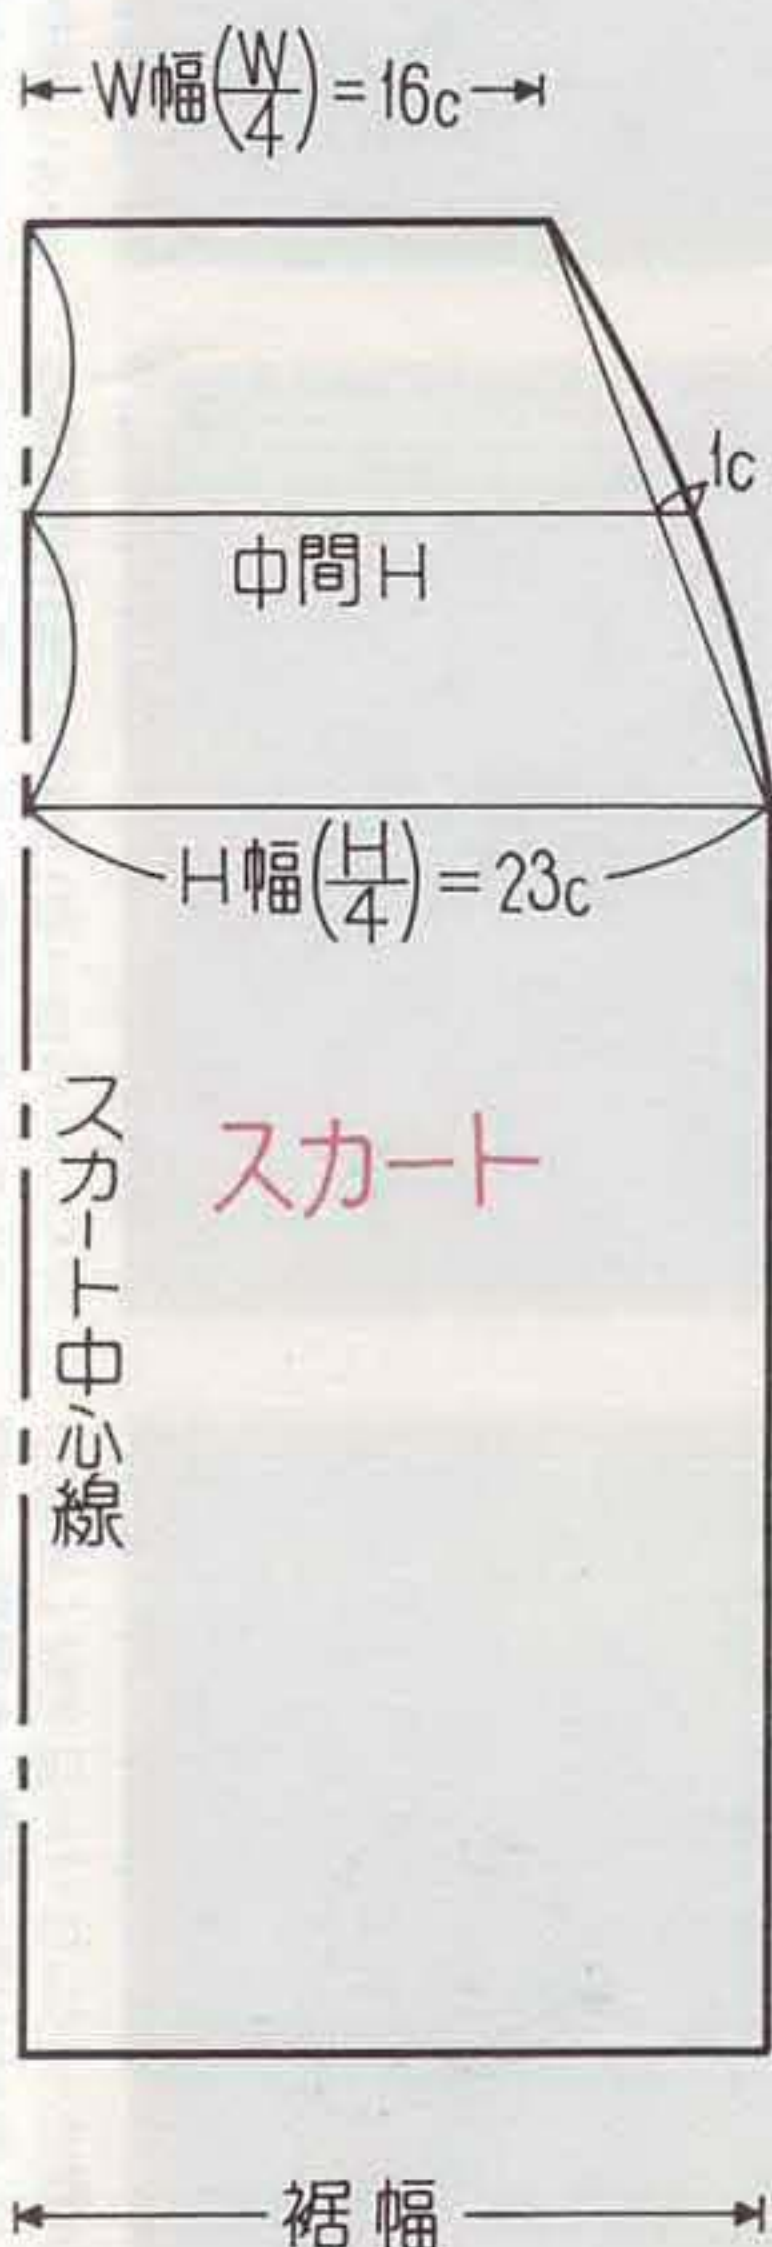 W幅(W/4)=16c
1c
中間H
H幅(H/4)=23c
スカート
スカート中心線
裾幅